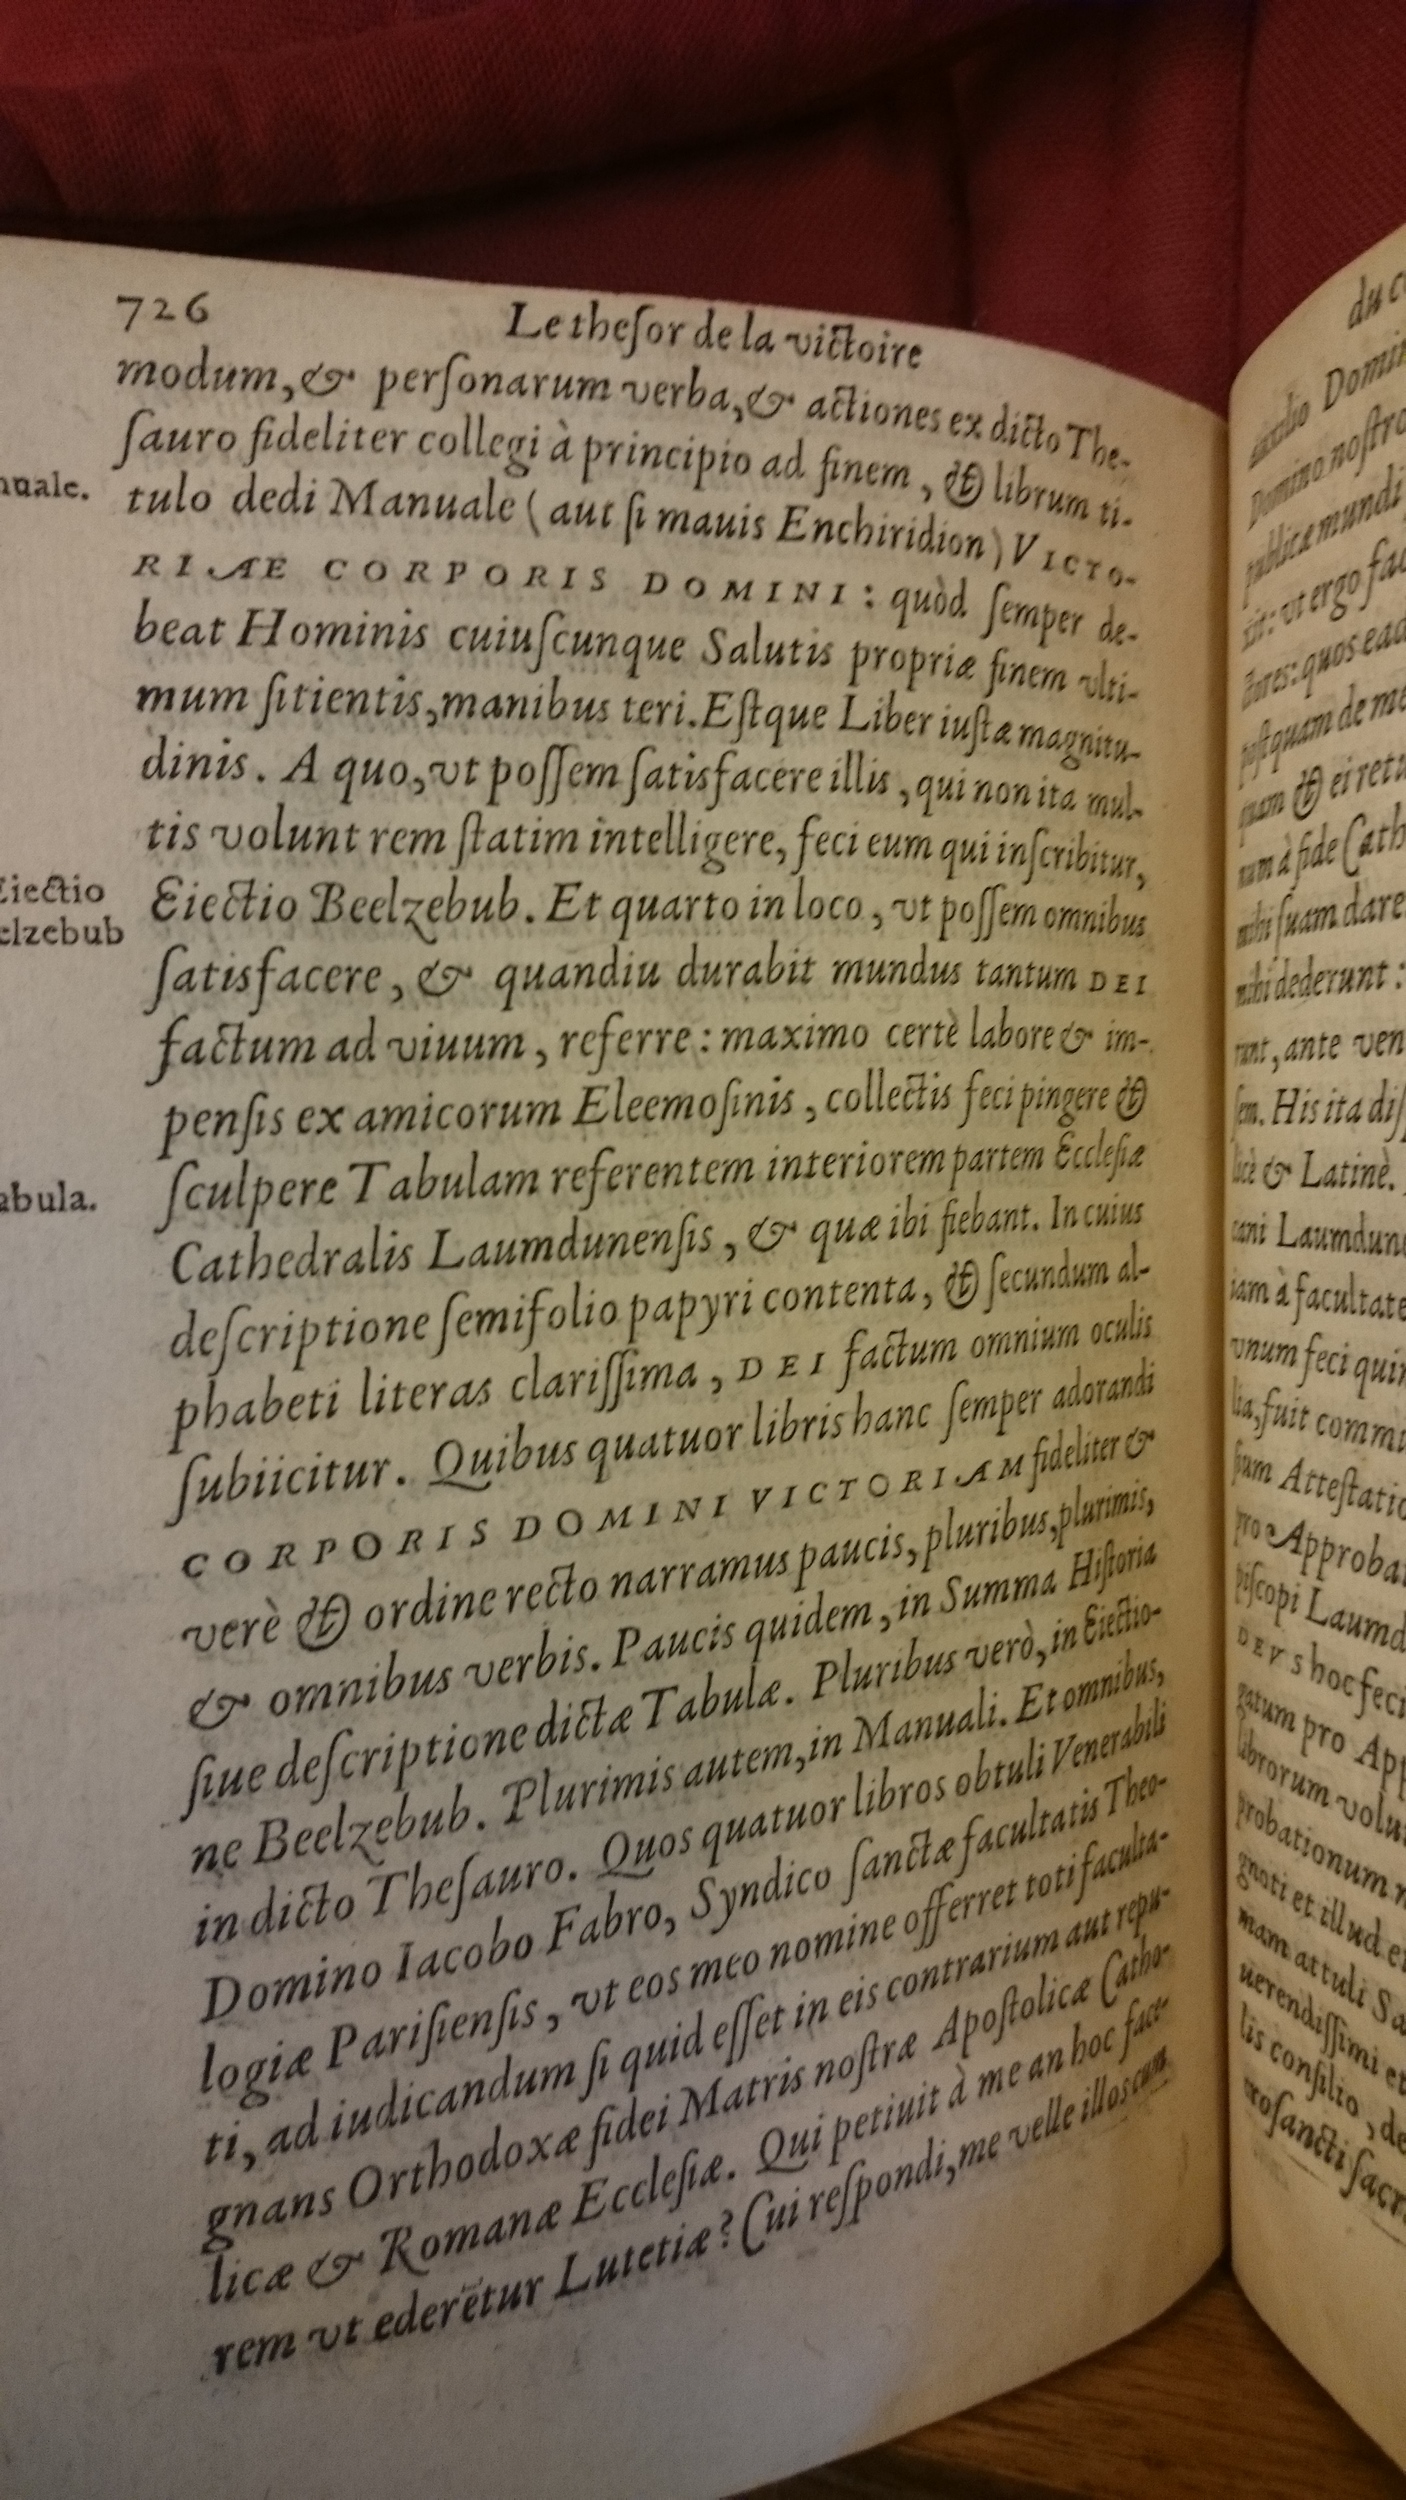 726 Le theſor de la victoire
modum, & perſonarum verba, & actiones ex dicto The-
ſauro fideliter collegi à principio ad finem, & librum ti-
tulo dedi Manuale ( aut ſi mauis Enchiridion) VICTO-
RIÆ CORPORIS DOMINI: quòd ſemper de-
beat Hominis cuiuſcunque Salutis propriæ finem vlti-
mum ſitientis, manibus teri. Eſtque Liber iuſtæ magnitu-
dinis. A quo, vt poſſem ſatisfacere illis, qui non ita mul-
tis volunt rem ſtatim intelligere, feci eum qui inſcribitur,
Eiectio
Eiectio Beelzebub. Et quarto in loco, vt poſſem omnibus
ſatisfacere, & quandiu durabit mundus tantum DEI
factum ad viuum, referre: maximo certè labore & im-
penſis ex amicorum Eleemoſinis, collectis feci pingere &
ſculpere Tabulam referentem interiorem partem Eccleſiæ
Cathedralis Laumdunenſis, & quæ ibi fiebant. In cuius
deſcriptione ſemifolio papyri contenta, & ſecundum al-
phabeti literas clariſſima, DEI factum omnium oculis
ſubiicitur. Quibus quatuor libris hanc ſemper adorandi
CORPORIS DOMINI VICTORIAM fideliter &
verè & ordine recto narramus paucis, pluribus, plurimis,
& omnibus verbis. Paucis quidem, in Summa Hiſtoria
ſiue deſcriptione dictæ Tabulæ. Pluribus verò, in Eiectio-
ne Beelzebub. Plurimis autem, in Manuali. Et omnibus,
in dicto Theſauro. Quos quatuor libros obtuli Venerabili
Domino Iacobo Fabro, Syndico ſanctæ facultatis Theo-
logiæ Pariſienſis, vt eos meo nomine offerret toti faculta-
ti, ad iudicandum ſi quid eſſet in eis contrarium aut repu-
gnans Orthodoxæ fidei Matris noſtræ Apoſtolicæ Catho-
licæ & Romanæ Eccleſiæ. Qui petiuit à me an hoc face-
rem vt ederetur Lutetiæ? Cui reſpondi, me velle illos cum
Domino noſtro
publicæ mundi
vt ergo fac
quos ead
quam de me
& ei retu
à fide Cath
ſuam dare
dederunt :
ante ven
His ita diſ
& Latinè.
Laumdun
iam à facultate
vnum feci quin
fuit commi
Atteſtatio
pro Approba
Laumd
DEVS hoc feci
pro App
librorum volu
et illud
mam attuli Sa
et
conſilio, de